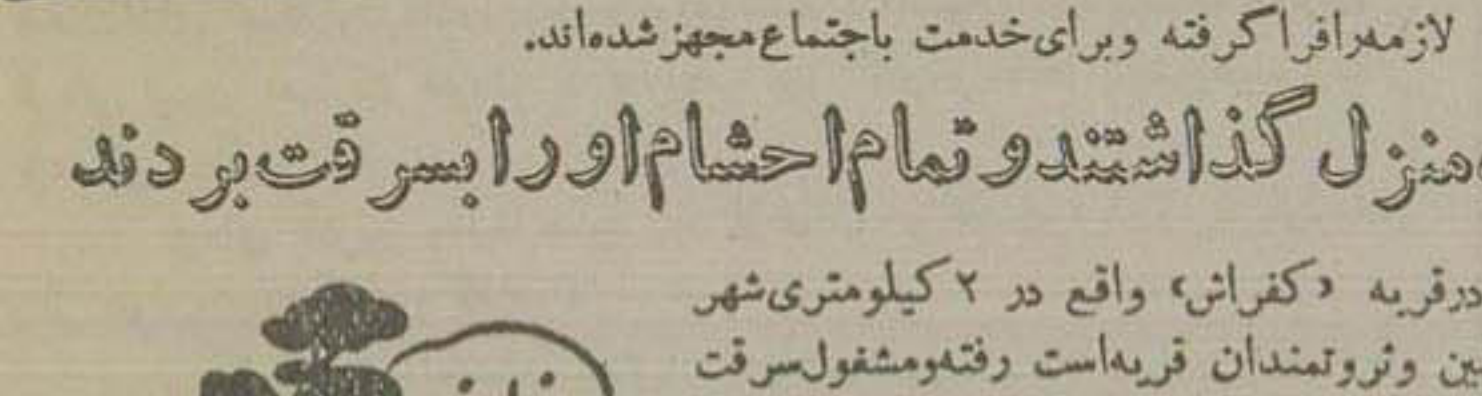 لازمه‌رافراگرفته وبرای‌خدمت باجتماع‌مجهزشده‌اند.
منزل گذاشتندو تمام‌احشام‌اورابسرقت‌بردند
درقریه «کفراش» واقع در ۲ کیلومتری‌شهر
ین وثروتمندان قریه‌است رفته‌ومشغول‌سرقت